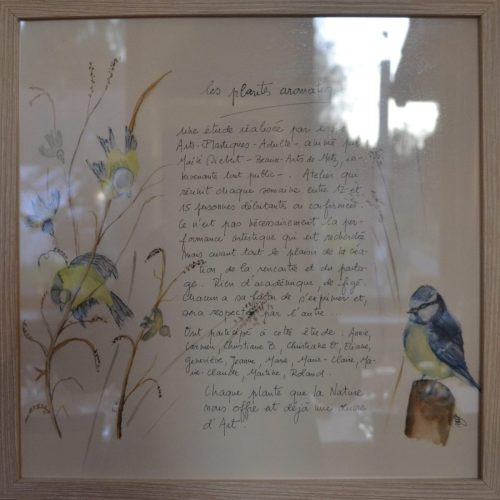 les plantes aromati
une étude réalisée par
Arts-Plastiques-Adulte-, animé par
Maïté Siebert - Beaux-Arts de Metz, in-
tervenante tout public -. Atelier qui
réunit chaque semaine entre 12 et
15 personnes débutants ou confirmés.
Ce n'est pas nécessairement la per-
formance artistique qui est recherchée
mais avant tout le plaisir de la créa-
tion de la rencontre et du parta-
ge. Rien d'académique, de figé.
Chacun a sa façon de s'exprimer et,
sera respectée par l'autre.
Ont participé à cette étude : Annie,
Carmen, Christiane B., Christiane D, Eliane,
Geneviève, Jeanne, Marie, Marie-Claire, Ma-
rie-Claude, Martine, Roland.
Chaque plante que la Nature
nous offre est déjà une œuvre
d'Art.